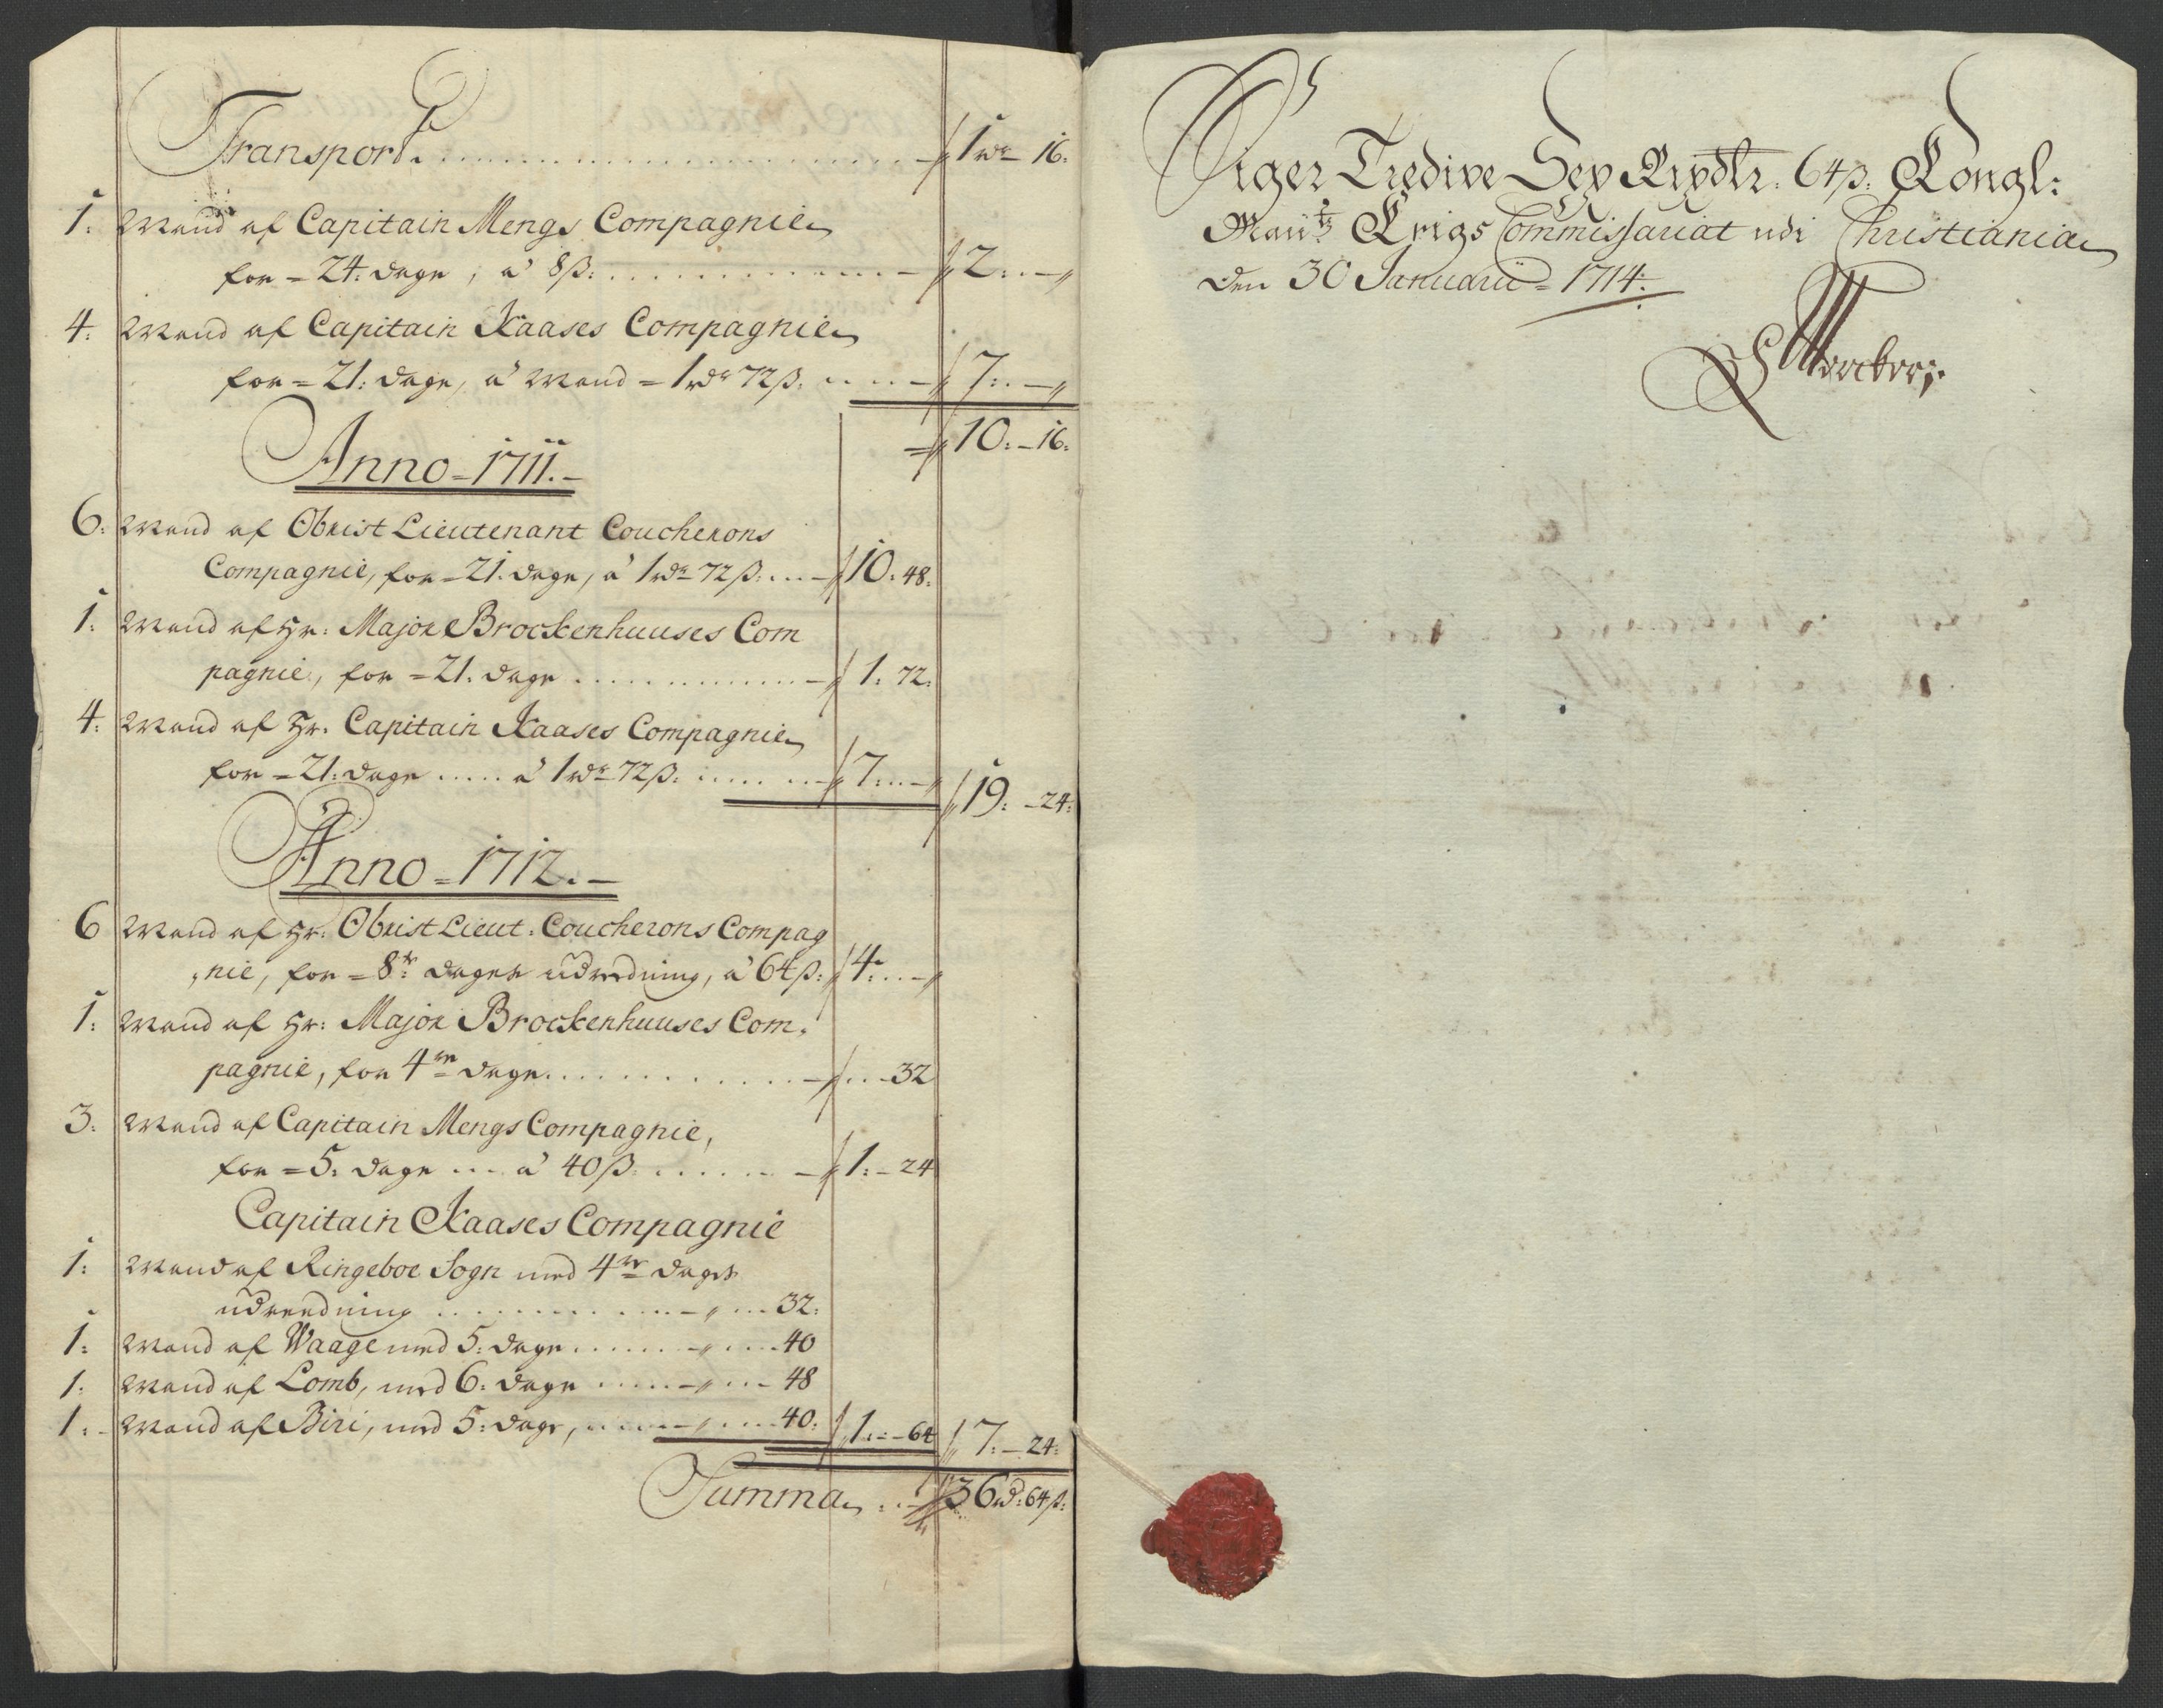 Transport. – 1 rdr 16:
1: Mand af Capitain Mengs Compagnie
for = 24: dage, a 8 ß: – 2: –
4: Mand af Capitain Kaases Compagnie
for = 21: dage, a Mand = 1 rdr 72 ß. – 7: –
10: – 16:
Anno – 1711. –
6: Mand af Obrist Lieutenant Coucherons
Compagnie, for = 21. dage, a 1 rdr 72 ß: – 10: 48:
1: Mand af Hr: Major Brockenhuuses Com
pagnie, for = 21. dage – 1: 72:
4: Mand af Hr. Capitain Kaases Compagnie
for = 21: dage a 1 rdr 72 ß: – 7: –
19: – 24:
Anno – 1712. –
6 Mand af Hr: Obrist Lieut: Coucherons Compag
nie, for = 8te dages udredning, a 64 ß: 4: –
1: Mand af Hr: Major Brockenhuuses Com,
pagnie, for 4re dage – 32
3: Mand af Capitain Mengs Compagnie,
for = 5: dage a 40 ß – 1: – 24
Capitain Kaases Compagnie
1: Mand af Ringeboe Sogn med 4re dages
udreedning – 32:
1: Mand af Waage med 5: dage – 40
1: Mand af Lomb, med 6: dage – 48
1: Mand af Biri, med 5: dage, – 40: 1: – 64 7: – 24:
Summa – 36 rd: 64 ß:
Siger Tredive Sex Rixdlr. 64 ß. Kongl:
Mayts Krigs Commissariat udi Christiania
den 30 Januarii = 1714: